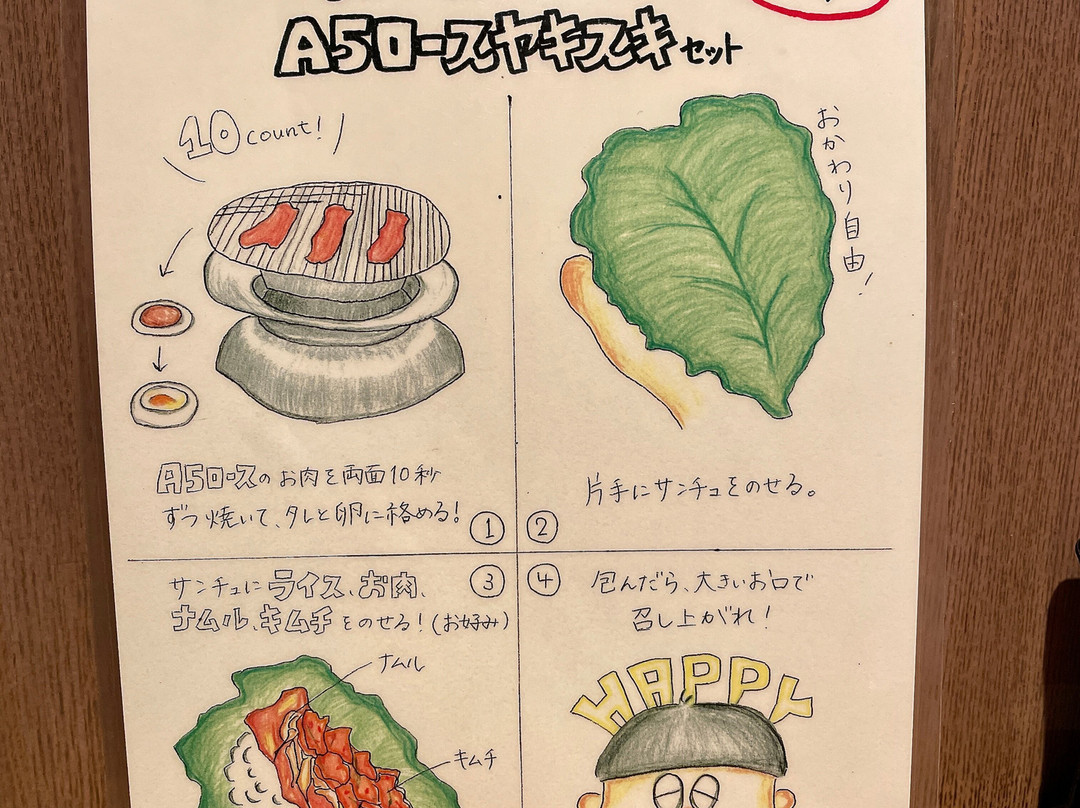 A5ロースヤキスキセット
10count!
おかわり自由!
A5ロースのお肉を両面10秒
ずつ焼いて、タレと卵に絡める!
①
②
片手にサンチュをのせる。
サンチュにライス、お肉、
ナムル、キムチをのせる!(お好み)
③
④
包んだら、大きいお口で
召し上がれ!
ナムル
キムチ
HAPPY